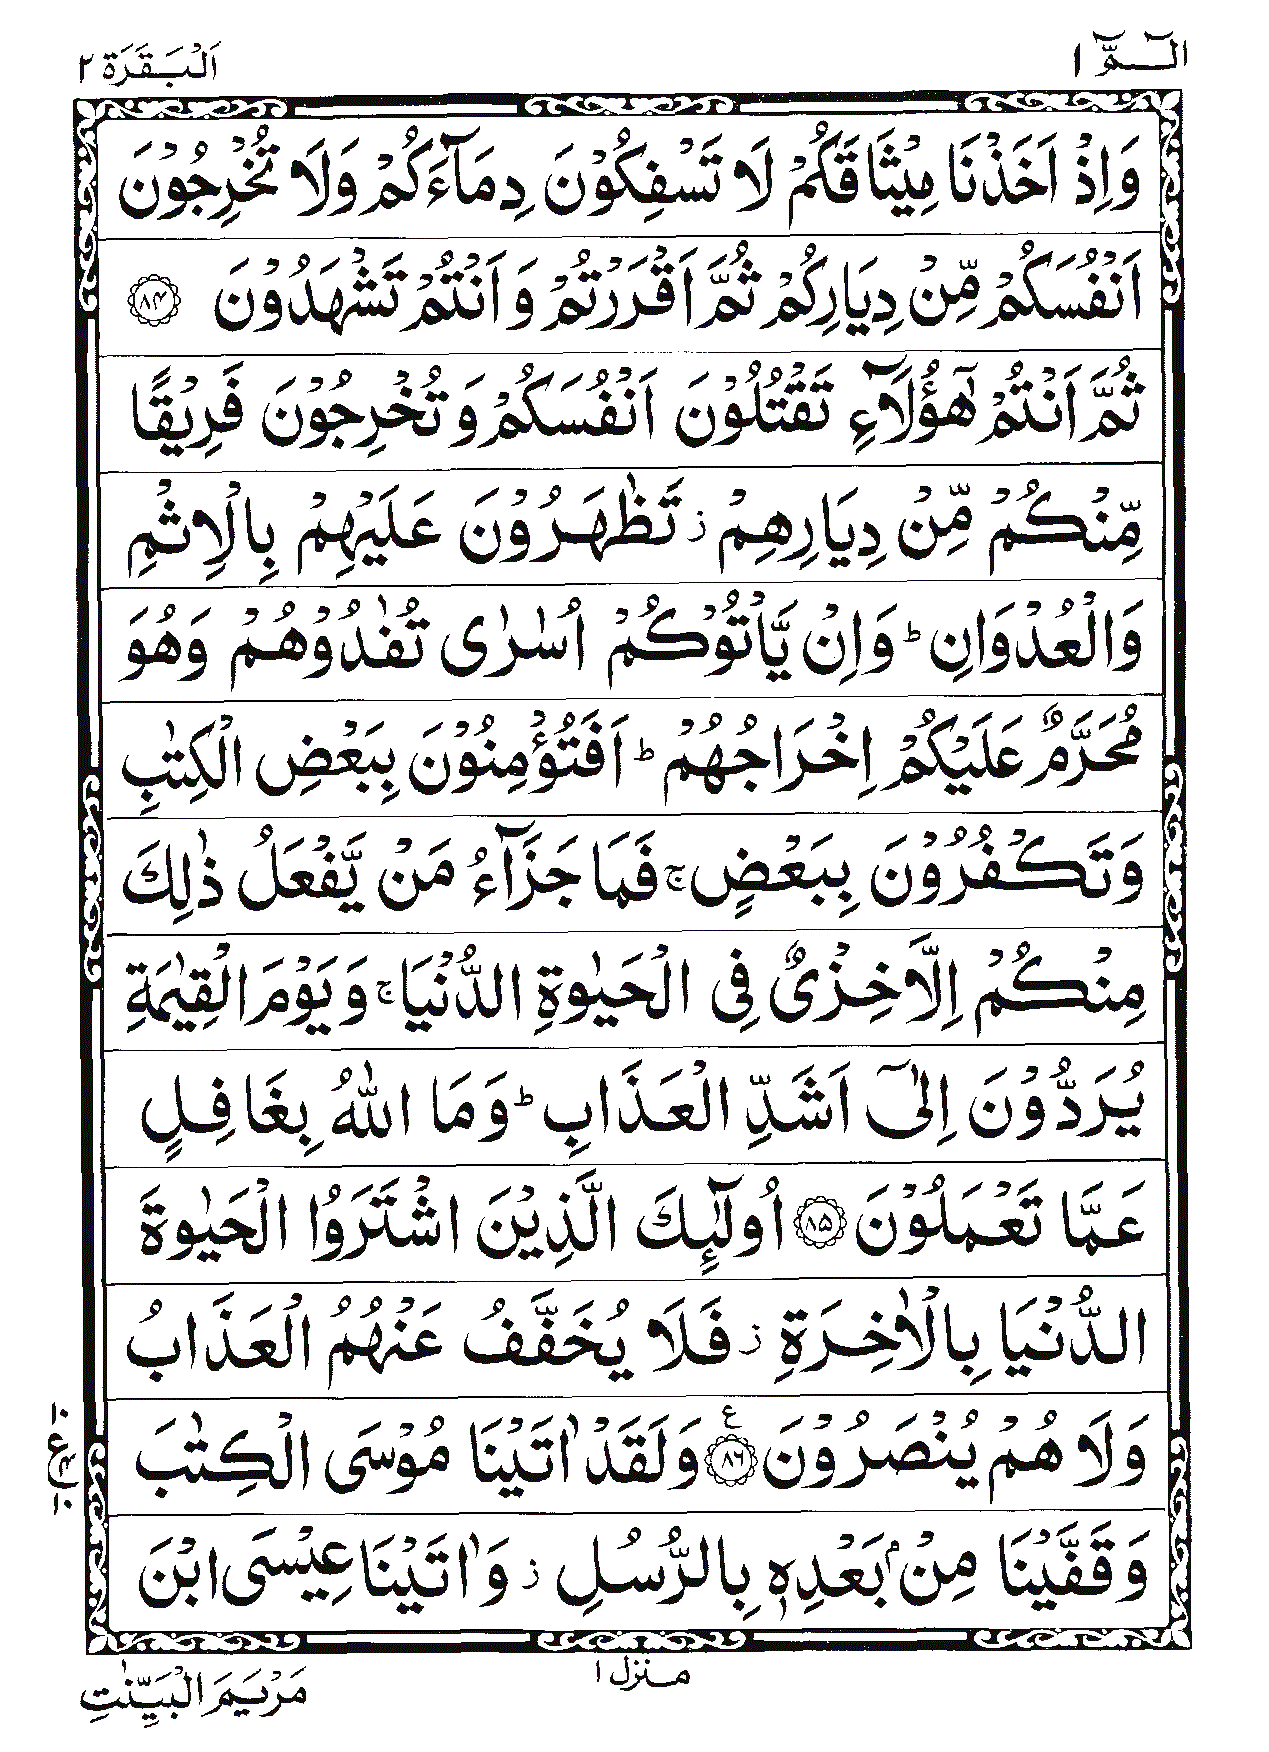 الٓـمّٓ ١ اَلْبَقَرَة ٢
وَاِذْ اَخَذْنَا مِيْثَاقَكُمْ لَا تَسْفِكُوْنَ دِمَآءَكُمْ وَلَا تُخْرِجُوْنَ
اَنْفُسَكُمْ مِّنْ دِيَارِكُمْ ثُمَّ اَقْرَرْتُمْ وَ اَنْتُمْ تَشْهَدُوْنَ ﴿٨٤﴾
ثُمَّ اَنْتُمْ هٰٓؤُلَآءِ تَقْتُلُوْنَ اَنْفُسَكُمْ وَ تُخْرِجُوْنَ فَرِيْقًا
مِّنْكُمْ مِّنْ دِيَارِهِمْ ز تَظٰهَرُوْنَ عَلَيْهِمْ بِالْاِثْمِ
وَالْعُدْوَانِ ؕ وَاِنْ يَّاْتُوْكُمْ اُسٰرٰى تُفٰدُوْهُمْ وَهُوَ
مُحَرَّمٌ عَلَيْكُمْ اِخْرَاجُهُمْ ؕ اَفَتُؤْمِنُوْنَ بِبَعْضِ الْكِتٰبِ
وَتَكْفُرُوْنَ بِبَعْضٍ ۚ فَمَا جَزَآءُ مَنْ يَّفْعَلُ ذٰلِكَ
مِنْكُمْ اِلَّا خِزْىٌ فِى الْحَيٰوةِ الدُّنْيَا ۚ وَ يَوْمَ الْقِيٰمَةِ
يُرَدُّوْنَ اِلٰٓى اَشَدِّ الْعَذَابِ ؕ وَمَا اللّٰهُ بِغَافِلٍ
عَمَّا تَعْمَلُوْنَ ﴿٨٥﴾ اُولٰٓئِكَ الَّذِيْنَ اشْتَرَوُا الْحَيٰوةَ
الدُّنْيَا بِالْاٰخِرَةِ ز فَلَا يُخَفَّفُ عَنْهُمُ الْعَذَابُ
وَلَا هُمْ يُنْصَرُوْنَ ﴿٨٦﴾ ع وَلَقَدْ اٰتَيْنَا مُوْسَى الْكِتٰبَ
وَقَفَّيْنَا مِنْۢ بَعْدِهٖ بِالرُّسُلِ ز وَ اٰتَيْنَا عِيْسَى ابْنَ
منزل ١
مَرْيَمَ الْبَيِّنٰتِ